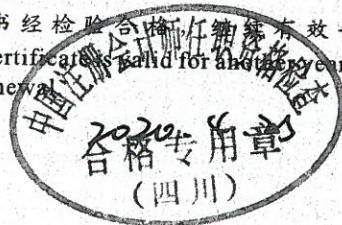 书经检验合格，继续有效一
ertificate is valid for another year
newal
中国注册会计师任职资格检查
合格专用章
（四川）